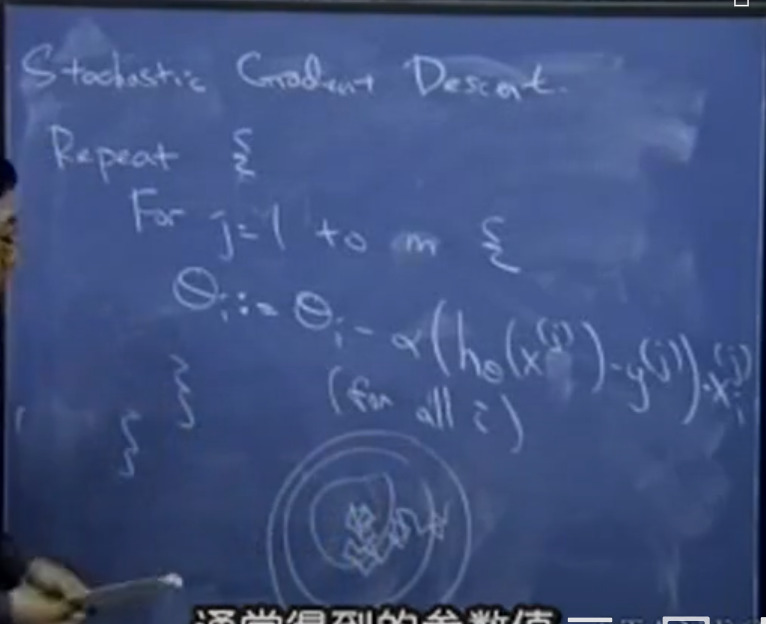 Stochastic Gradient Descent.
Repeat {
For j=1 to m {
Θi := Θi - α(hθ(x^(j)) - y^(j)) · xi^(j)
(for all i)
}
}
通常得到的参数值